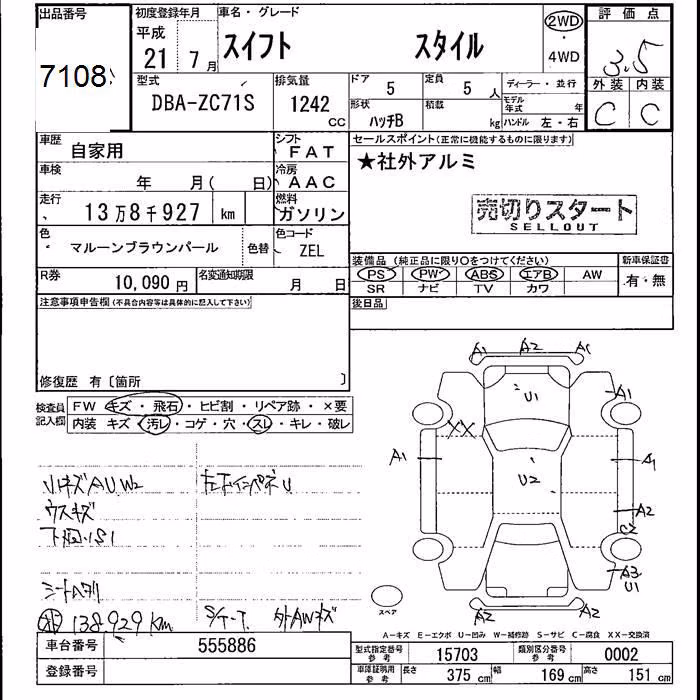 出品番号
7108
初度登録年月
平成
21 7月
車名・グレード
スイフト スタイル
2WD
・
4WD
評価点
3.5
外装 内装
C C
型式
DBA-ZC71S
排気量
1242
CC
ドア
5
定員
5 人
形状
ハッチB
積載
kg
ディーラー・並行
モデル年式 年
ハンドル 左・右
車歴
自家用
シフト
FAT
車検
年 月( 日)
冷房
AAC
走行
13万8千927 km
燃料
ガソリン
色
マルーンブラウンパール
色替
色コード
ZEL
R券
10,090円
名変通知期限
月 日
セールスポイント(正常に機能するものに限ります)
★社外アルミ
売切りスタート
SELLOUT
装備品(純正品に限り○をつけてください)
PS PW ABS エアB AW
SR ナビ TV カワ
新車保証書
有・無
後日品
注意事項申告欄(不具合内容等は具体的に記入して下さい)
修復歴 有〔箇所 〕
検査員
記入欄
FW キズ・飛石・ヒビ割・リペア跡・×要
内装 キズ・汚レ・コゲ・穴・スレ・キレ・破レ
A1 A2 A1
U1
A1
XX
A1
U2
A1
A2
C2
A3
U1
A2 A2
スペア
小キズAUW2
ウスキズ
下回りS1
138,929km
S/T-T.
外AWキズ
A-キズ E-エクボ U-凹み W-補修跡 S-サビ C-腐食 XX-交換済
車台番号
555886
登録番号
型式指定番号
参考
15703
類別区分番号
参考
0002
車庫証明用
参考
長さ 375 cm
幅 169 cm
高さ 151 cm